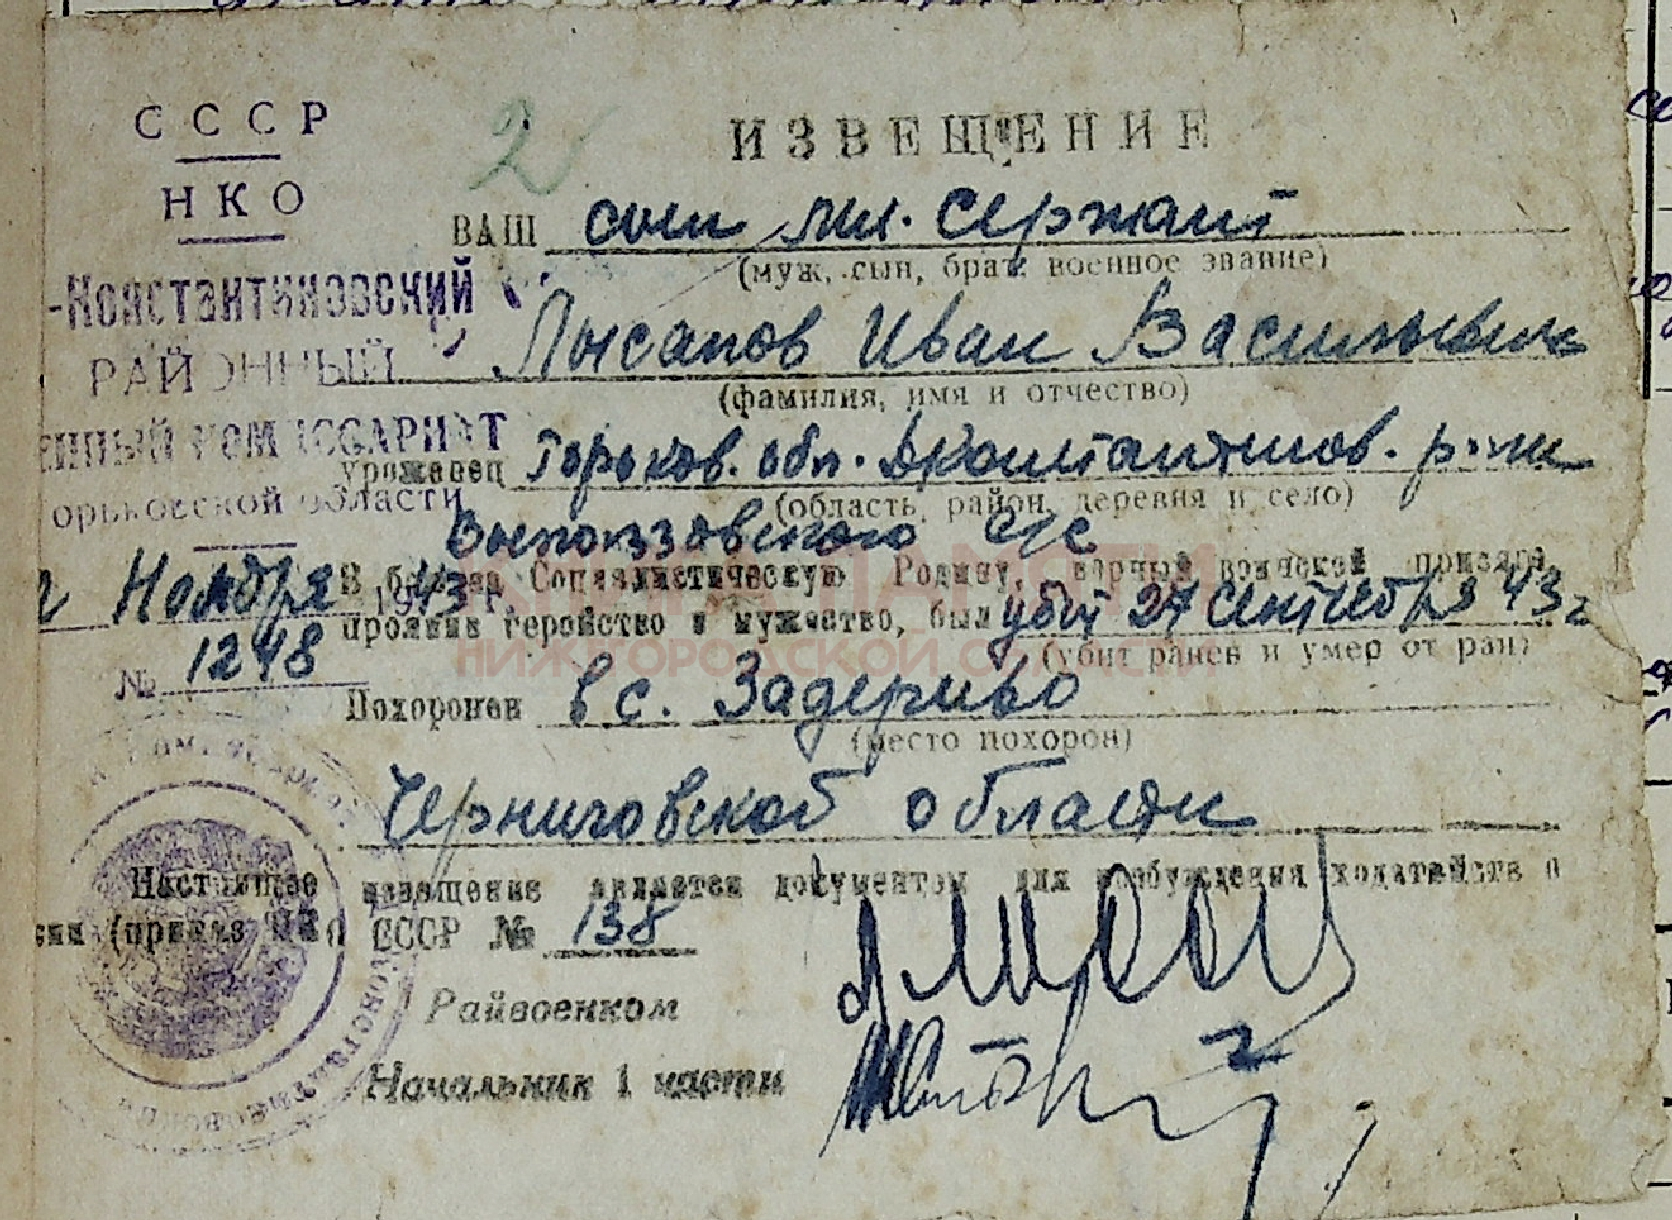 СССР
НКО
-Константиновский
РАЙОННЫЙ
ЕННЫЙ КОМИССАРИАТ
орьковской области
Ноября 1943 г.
№ 1248
2
ИЗВЕЩЕНИЕ
ВАШ сын мл. сержант
(муж, сын, брат, военное звание)
Лысапов Иван Васильевич
(фамилия, имя и отчество)
уроженец Горьков. обл. Дконстантинов. р-на
(область, район, деревня и село)
Выползовского с/с
В бою за Социалистическую Родину, верный воинской присяге,
проявив геройство и мужество, был убит 27 сентября 43 г
(убит ранен и умер от ран)
Похоронен в с. Задериево
(место похорон)
Черниговской области
Настоящее извещение является документом для возбуждения ходатайств о
сии (приказ НКО СССР № 138
Райвоенком
Начальник 1 части
КНИГА ПАМЯТИ
НИЖЕГОРОДСКОЙ ОБЛАСТИ